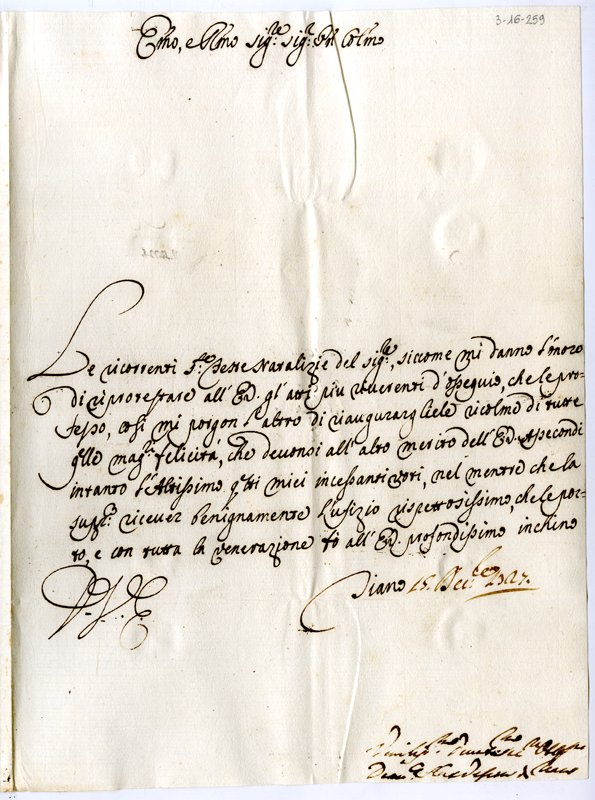 3-16-259
Emo, e Rmo sig.re sig.r Pñ Colmo
Le ricorrenti S.te Feste Natalizie del sig.re, siccome mi danno l'moto
di riprotestare all' E.V. gl'atti più riverenti d'ossequio, che le pro-
fesso, così mi porgon l'altro di riaugurargliele ricolme di tutte
q.lle mag.ri felicità, che devonsi all' alto merito dell' E.V. Assecondi
intanto l'Altissimo q.sti miei incessanti voti, nel mentre che la
supp.co ricever benignamente l'ufizio rispettosissimo, che le por-
to, e con tutta la venerazione fò all' E.V. profondissimo inchino
D. V. E.
Diano 15. Dec.bre 1727.